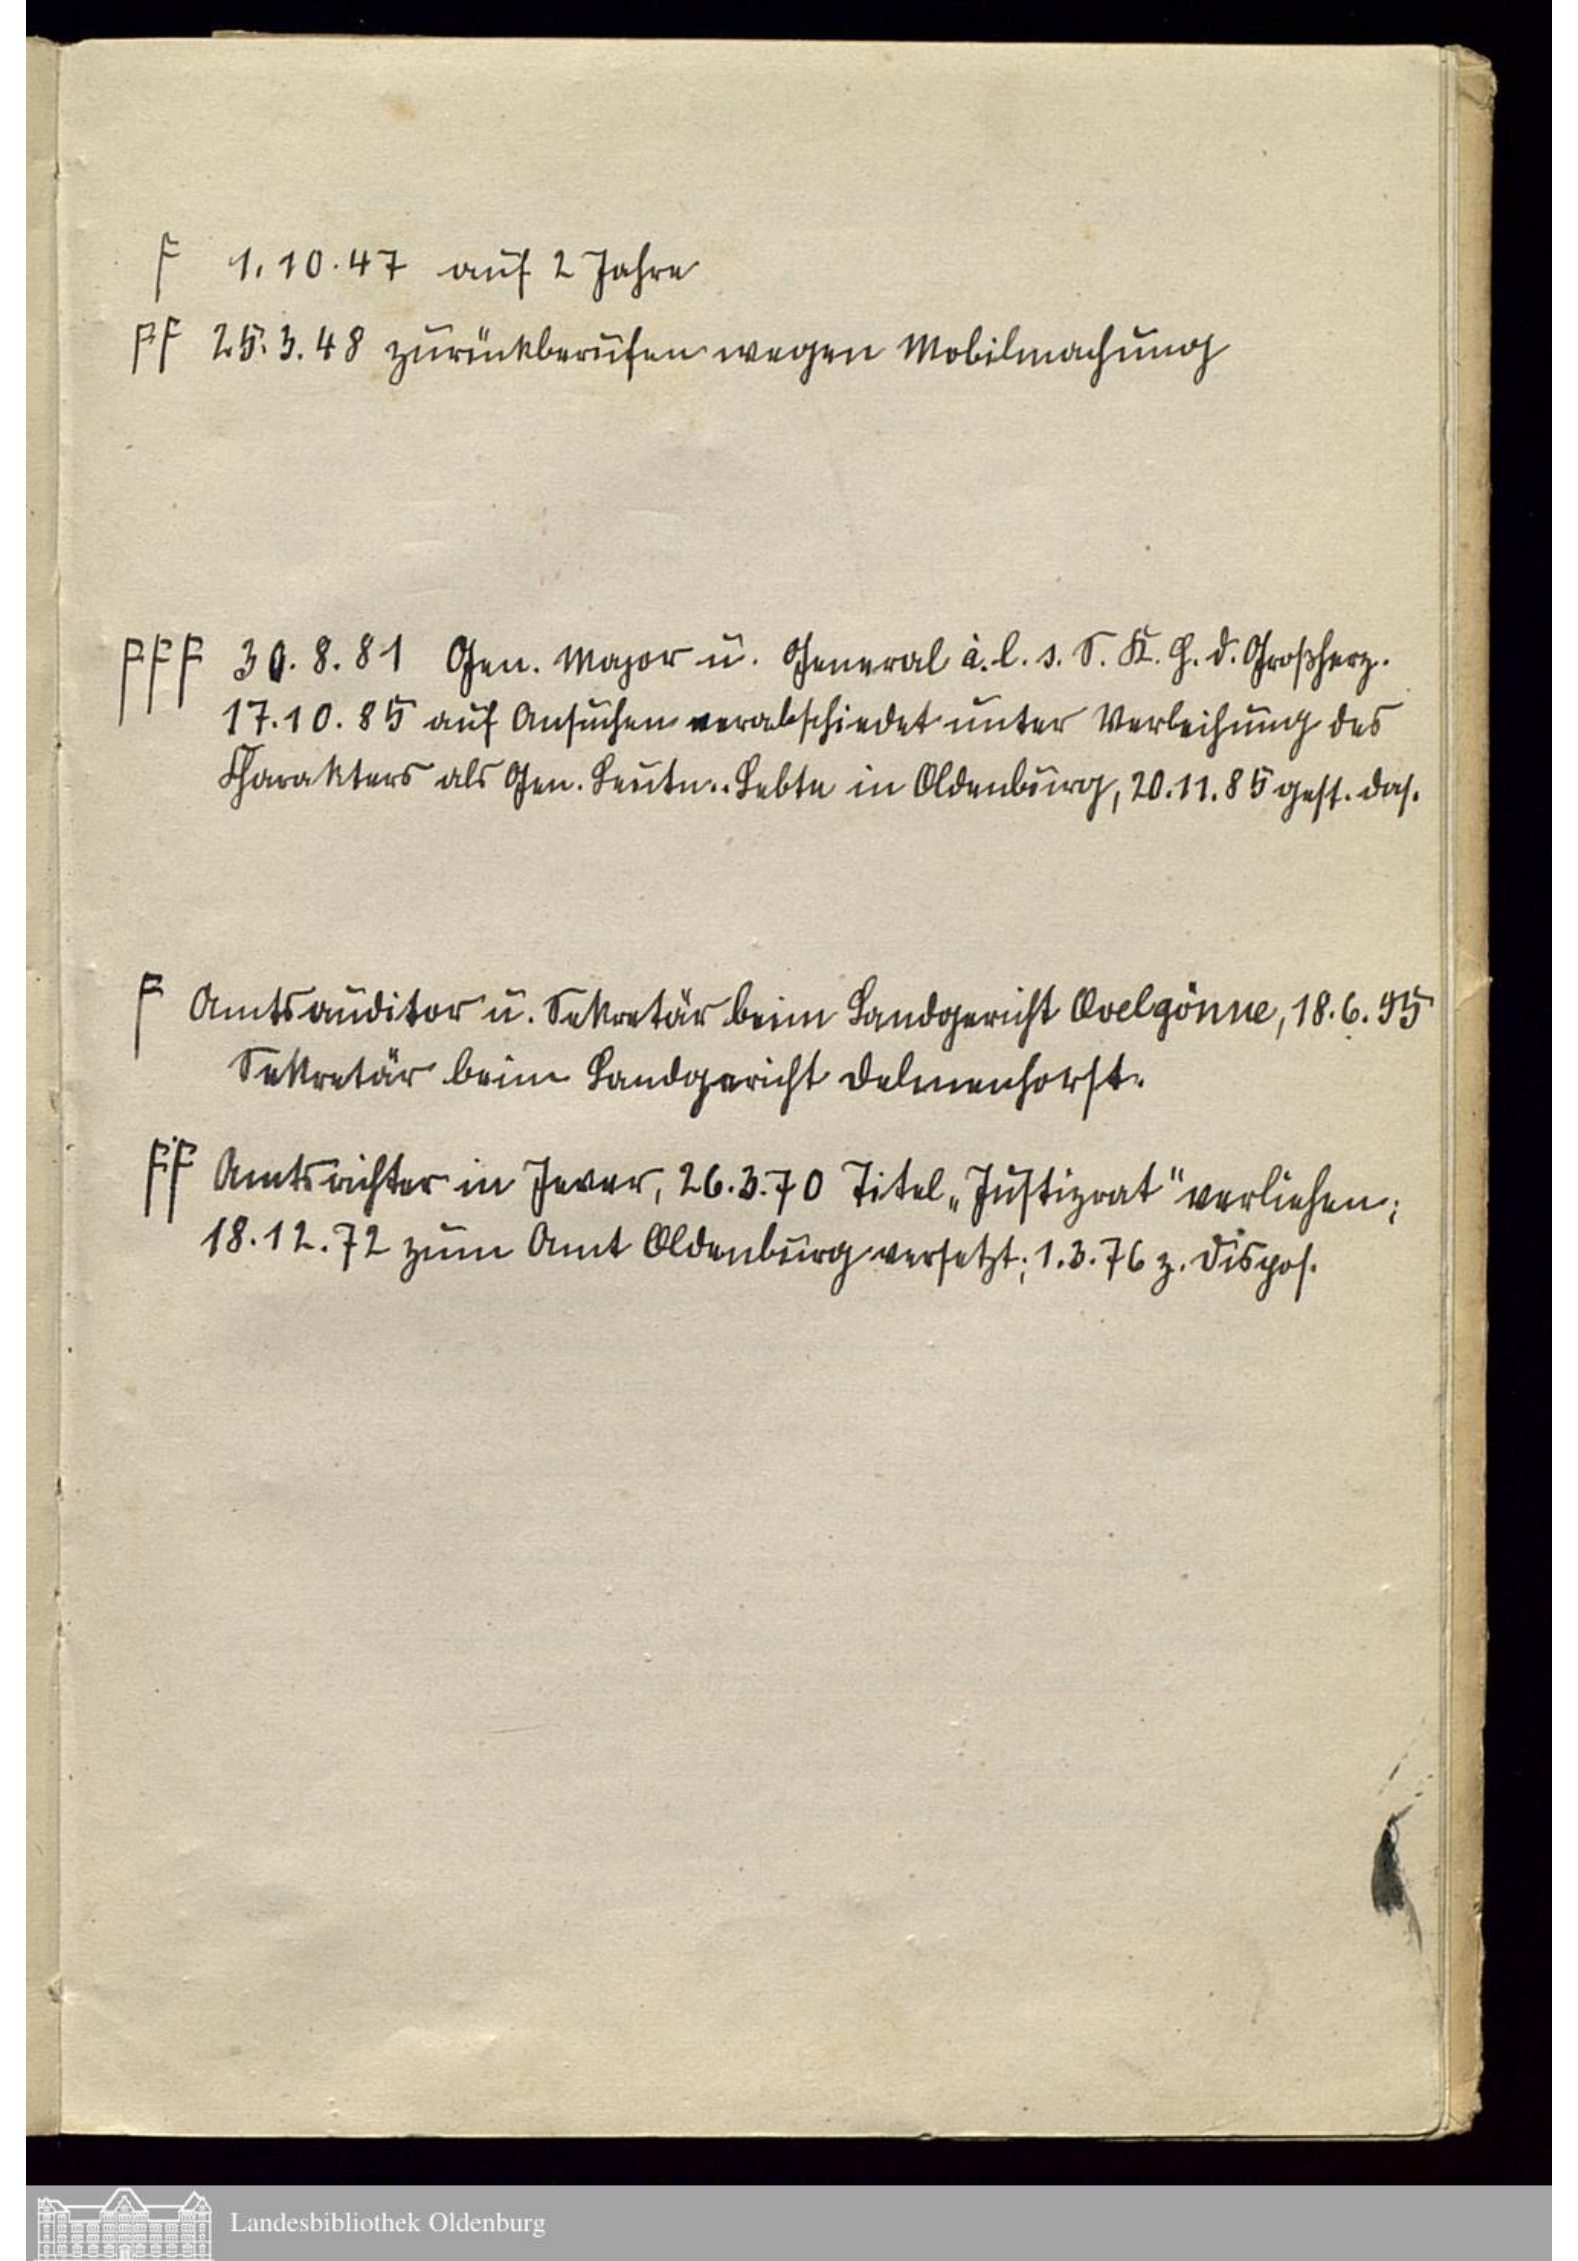 F 1.10.47 auf 2 Jahre
FF 25.3.48 zurückberufen wegen Mobilmachung
FFF 30.8.81 Gen. Major u. General à. l. s. S. K. H. d. Großherz.
17.10.85 auf Ansuchen verabschiedet unter Verleihung des
Charakters als Gen. Leutn.. Lebte in Oldenburg, 20.11.85 gest. das.
F Amtsauditor u. Sekretär beim Landgericht Ovelgönne, 18.6.55
Sekretär beim Landgericht Delmenhorst.
FF Amtsrichter in Jever, 26.3.70 Titel „Justizrat" verliehen;
18.12.72 zum Amt Oldenburg versetzt; 1.3.76 z. Dispos.
Landesbibliothek Oldenburg